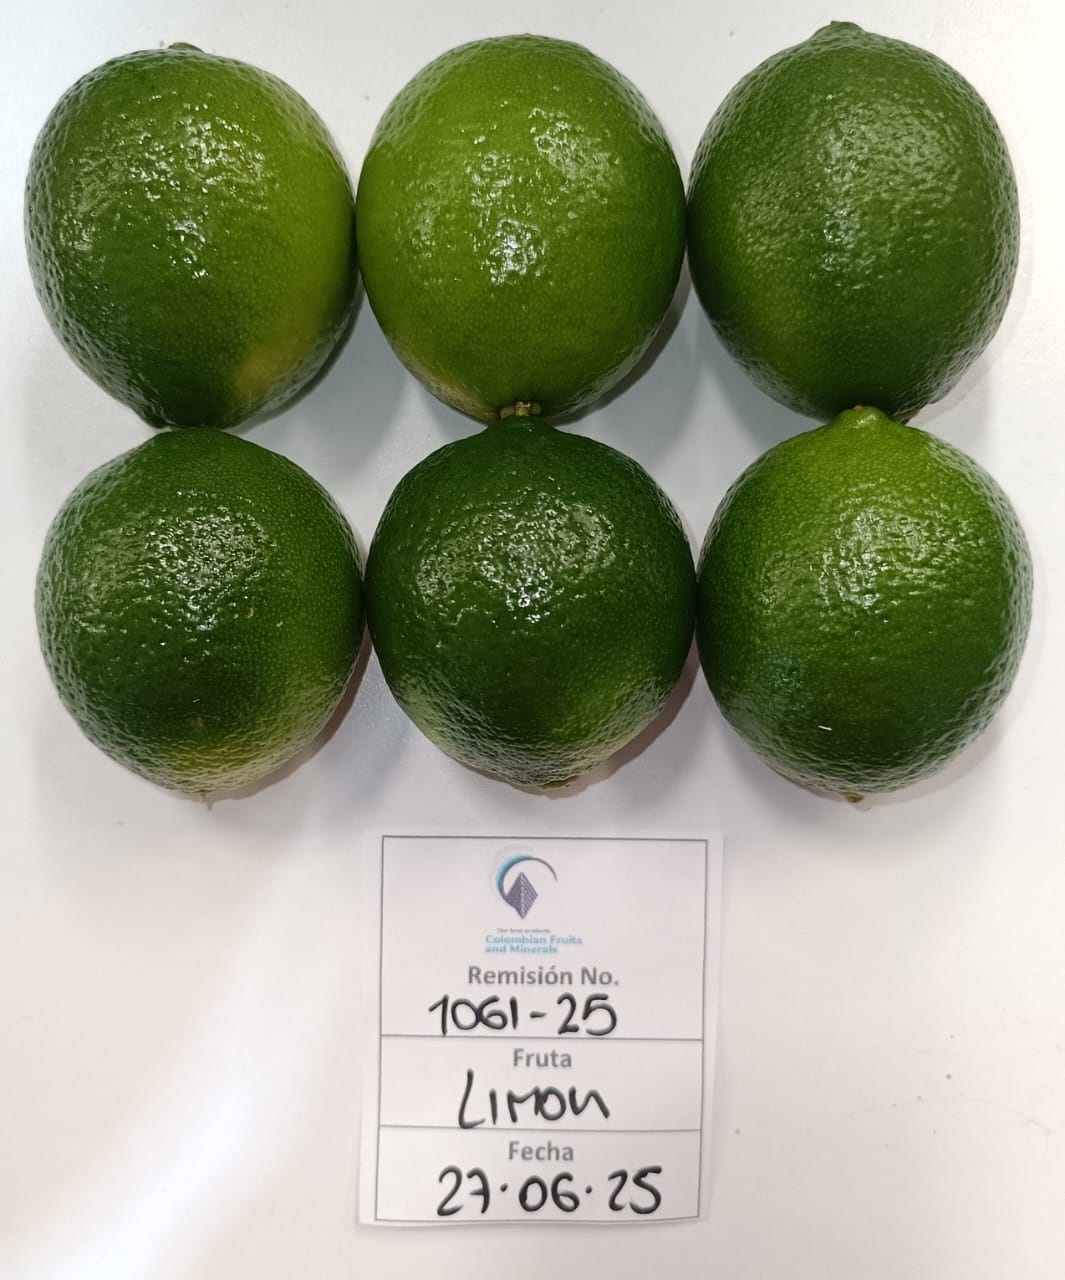 Our best products
Colombian Fruits
and Minerals
Remisión No.
1061-25
Fruta
LIMON
Fecha
27.06.25